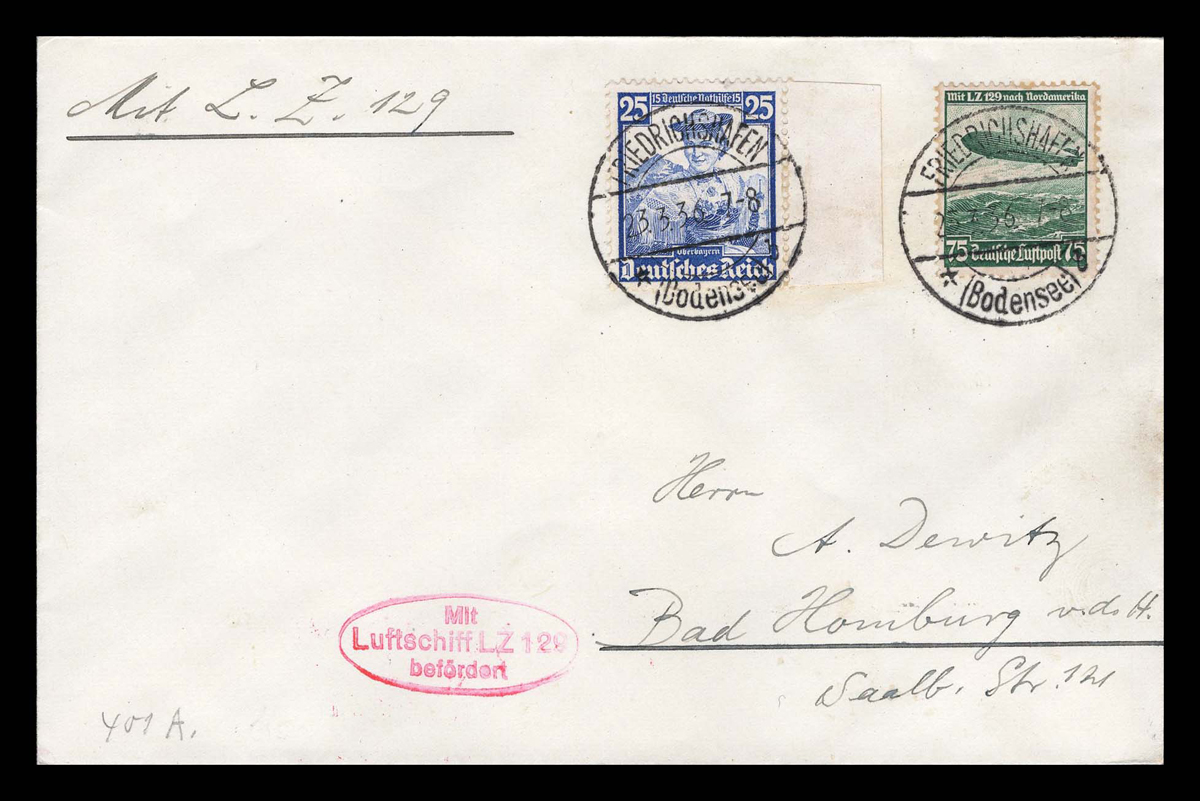 Mit L. Z. 129
25 15 Deutsche Nothilfe 15 25
Oberbayern
Deutsches Reich
FRIEDRICHSHAFEN
23.3.36 7-8
* (Bodensee) b
Mit LZ 129 nach Nordamerika
75 Deutsche Luftpost 75
FRIEDRICHSHAFEN
23.3.36 7-8
* (Bodensee)
Herrn
A. Dewitz
Bad Homburg v.d. H.
Saalb. Str.
Mit
Luftschiff LZ 129
befördert
401 A.